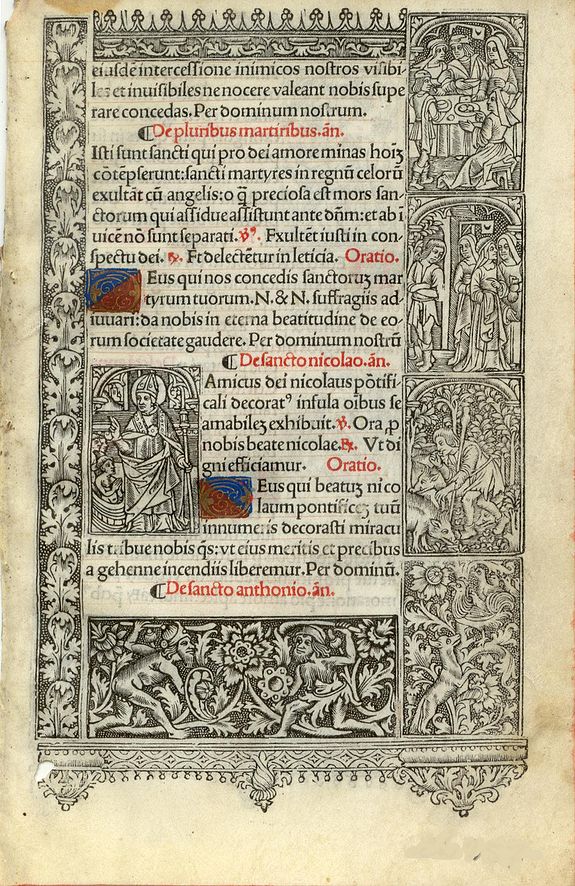 eiusdē intercessione inimicos nostros visibi-
les et inuisibiles ne nocere valeant nobis supe
rare concedas. Per dominum nostrum.
¶ De pluribus martiribus. añ.
Isti sunt sancti qui pro dei amore minas hoīꝫ
cōtēpserunt: sancti martyres in regnū celorū
exultāt cū angelis: o ꝙ̄ preciosa est mors san-
ctorum qui assidue assistunt ante dn̄m: et ab ī
uicē nō sunt separati. ℣. Exultēt iusti in con-
spectu dei. ℟. Et delectētur in leticia. Oratio.
Eus qui nos concedis sanctoruꝫ mar
tyrum tuorum. N. & N. suffragiis ad-
iuuari: da nobis in eterna beatitudine de eo-
rum societate gaudere. Per dominum nostrū
¶ De sancto nicolao. añ.
Amicus dei nicolaus pōtifi-
cali decoratꝰ infula oībus se
amabileꝫ exhibuit. ℣. Ora, p
nobis beate nicolae. ℟. Vt di
gni efficiamur. Oratio.
Eus qui beatuꝫ nico
laum pontificeꝫ tuū
innumeris decorasti miracu
lis tribue nobis qs̄: vt eius meritis et precibus
a gehenne incendiis liberemur. Per dominū.
¶ De sancto anthonio. añ.